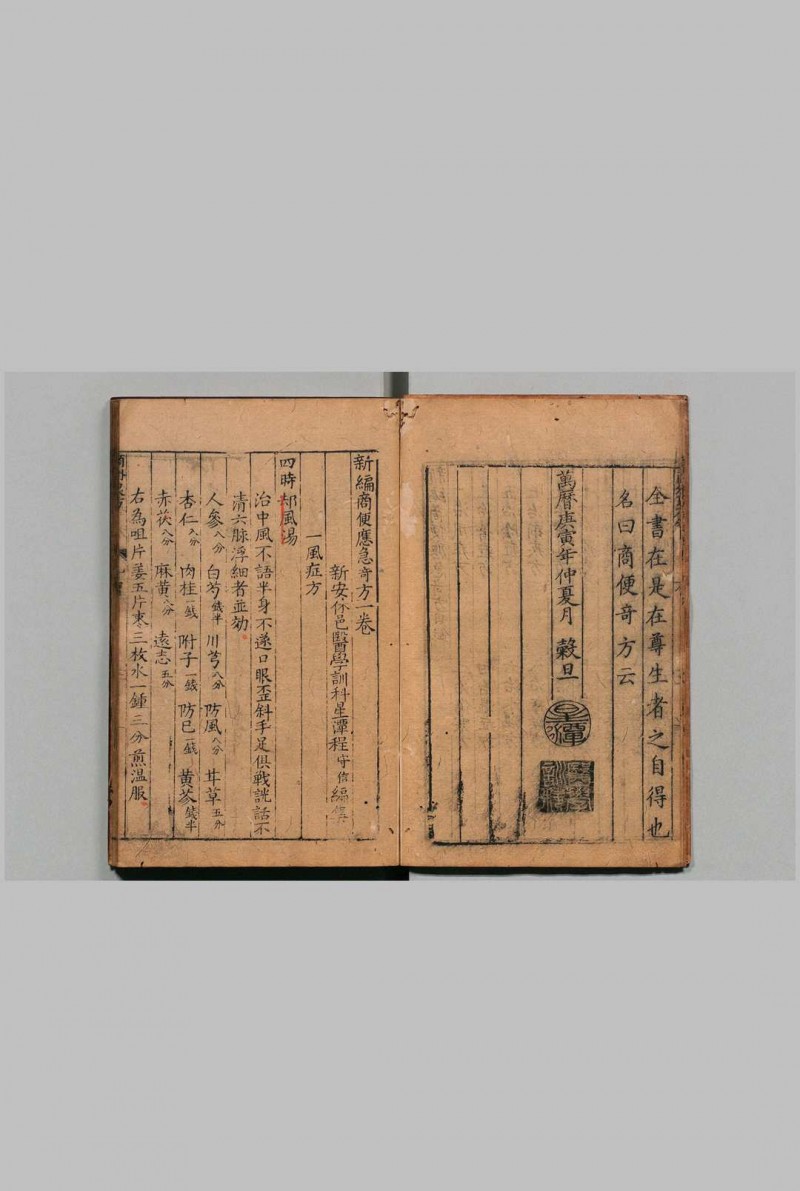 全書在是在尊生者之自得也
名曰商便奇方云
萬曆庚寅年仲夏月 穀旦
星潭
新編商便應急奇方一卷
新安休邑醫學訓科星潭程守信編集
一風症方
四時却風湯
治中風不語半身不遂口眼歪斜手足俱戰說話不
清六脉浮細者並効
人參八分 白芍錢半 川芎八分 防風八分 甘草五分
杏仁八分 肉桂一錢 附子一錢 防已一錢 黄芩錢半
赤茯八分 麻黄八分 遠志五分
右為咀片姜五片枣三枚水一鍾三分煎温服